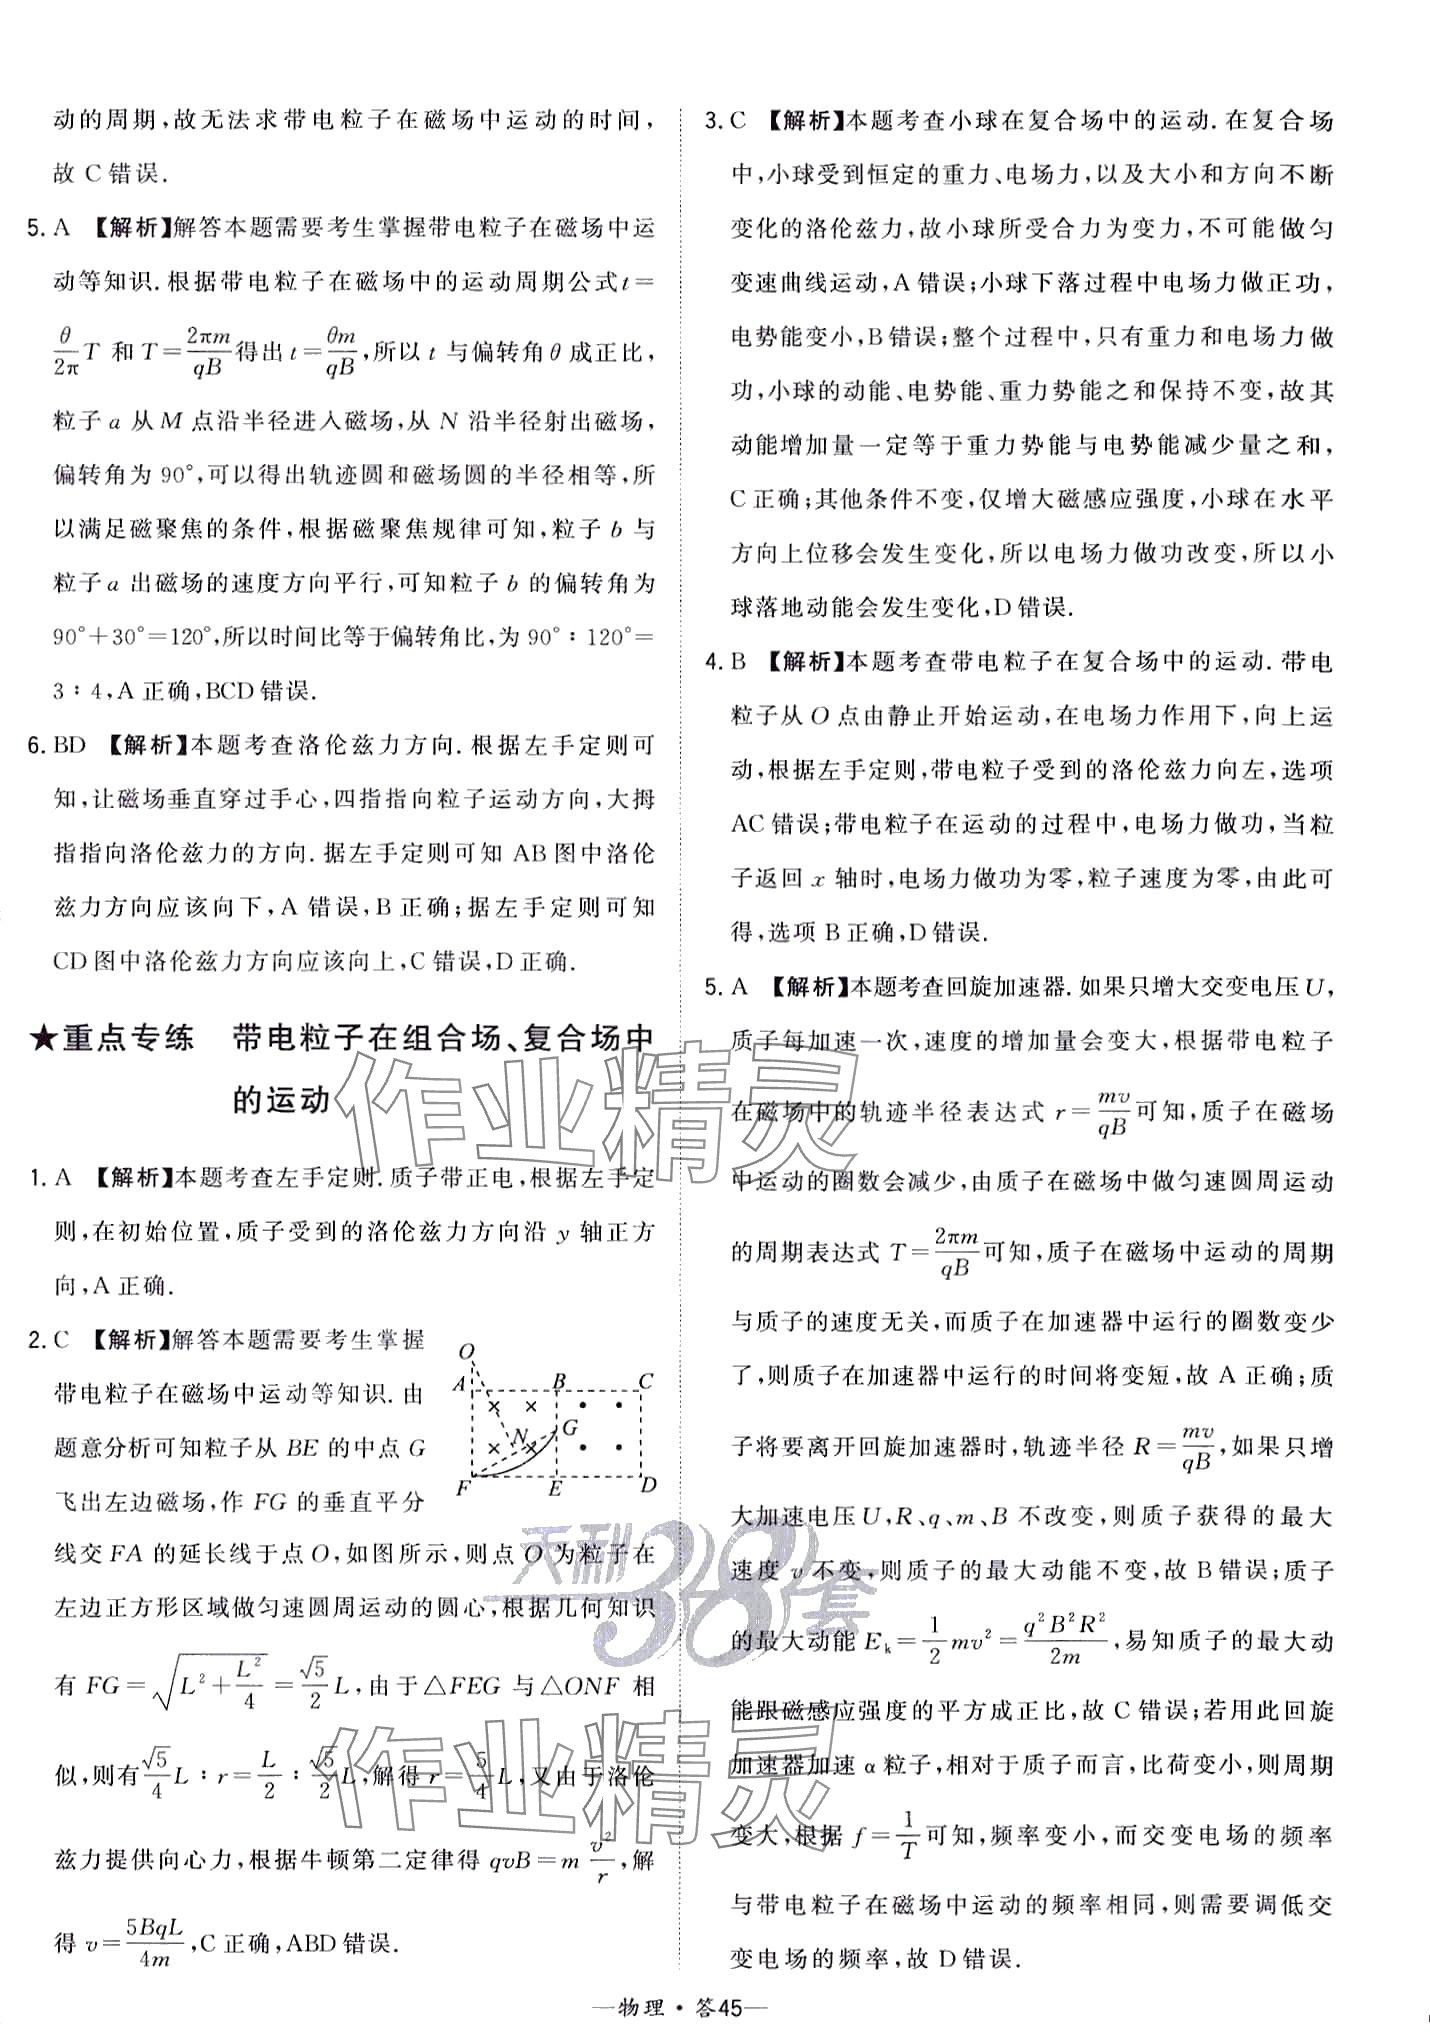 动的周期,故无法求带电粒子在磁场中运动的时间,
故 C 错误.
5. A 【解析】解答本题需要考生掌握带电粒子在磁场中运
动等知识.根据带电粒子在磁场中的运动周期公式 t=
θ/2π T 和 T=2πm/qB 得出 t=θm/qB,所以 t 与偏转角 θ 成正比,
粒子 a 从 M 点沿半径进入磁场,从 N 沿半径射出磁场,
偏转角为 90°,可以得出轨迹圆和磁场圆的半径相等,所
以满足磁聚焦的条件,根据磁聚焦规律可知,粒子 b 与
粒子 a 出磁场的速度方向平行,可知粒子 b 的偏转角为
90°+30°=120°,所以时间比等于偏转角比,为 90°∶120°=
3∶4,A 正确,BCD 错误.
6. BD 【解析】本题考查洛伦兹力方向.根据左手定则可
知,让磁场垂直穿过手心,四指指向粒子运动方向,大拇
指指向洛伦兹力的方向.据左手定则可知 AB 图中洛伦
兹力方向应该向下,A 错误,B 正确;据左手定则可知
CD 图中洛伦兹力方向应该向上,C 错误,D 正确.
★重点专练 带电粒子在组合场、复合场中
的运动
1. A 【解析】本题考查左手定则.质子带正电,根据左手定
则,在初始位置,质子受到的洛伦兹力方向沿 y 轴正方
向,A 正确.
2. C 【解析】解答本题需要考生掌握
带电粒子在磁场中运动等知识.由
题意分析可知粒子从 BE 的中点 G
飞出左边磁场,作 FG 的垂直平分
O
A B C
× × • •
N G
× × • •
F E D
线交 FA 的延长线于点 O,如图所示,则点 O 为粒子在
左边正方形区域做匀速圆周运动的圆心,根据几何知识
有 FG=√(L²+L²/4)=√5/2 L,由于△FEG 与△ONF 相
似,则有 √5/4 L∶r=L/2∶√5/2 L,解得 r=5/4 L,又由于洛伦
兹力提供向心力,根据牛顿第二定律得 qvB=m v²/r,解
得 v=5BqL/4m,C 正确,ABD 错误.
3. C 【解析】本题考查小球在复合场中的运动.在复合场
中,小球受到恒定的重力、电场力,以及大小和方向不断
变化的洛伦兹力,故小球所受合力为变力,不可能做匀
变速曲线运动,A 错误;小球下落过程中电场力做正功,
电势能变小,B 错误;整个过程中,只有重力和电场力做
功,小球的动能、电势能、重力势能之和保持不变,故其
动能增加量一定等于重力势能与电势能减少量之和,
C 正确;其他条件不变,仅增大磁感应强度,小球在水平
方向上位移会发生变化,所以电场力做功改变,所以小
球落地动能会发生变化,D 错误.
4. B 【解析】本题考查带电粒子在复合场中的运动.带电
粒子从 O 点由静止开始运动,在电场力作用下,向上运
动,根据左手定则,带电粒子受到的洛伦兹力向左,选项
AC 错误;带电粒子在运动的过程中,电场力做功,当粒
子返回 x 轴时,电场力做功为零,粒子速度为零,由此可
得,选项 B 正确,D 错误.
5. A 【解析】本题考查回旋加速器.如果只增大交变电压 U,
质子每加速一次,速度的增加量会变大,根据带电粒子
在磁场中的轨迹半径表达式 r=mv/qB 可知,质子在磁场
中运动的圈数会减少,由质子在磁场中做匀速圆周运动
的周期表达式 T=2πm/qB 可知,质子在磁场中运动的周期
与质子的速度无关,而质子在加速器中运行的圈数变少
了,则质子在加速器中运行的时间将变短,故 A 正确;质
子将要离开回旋加速器时,轨迹半径 R=mv/qB,如果只增
大加速电压 U,R、q、m、B 不改变,则质子获得的最大
速度 v 不变,则质子的最大动能不变,故 B 错误;质子
的最大动能 Eₖ=1/2 mv²=q²B²R²/2m,易知质子的最大动
能跟磁感应强度的平方成正比,故 C 错误;若用此回旋
加速器加速 α 粒子,相对于质子而言,比荷变小,则周期
变大,根据 f=1/T 可知,频率变小,而交变电场的频率
与带电粒子在磁场中运动的频率相同,则需要调低交
变电场的频率,故 D 错误.
作业精灵
天利38套
作业精灵
—物理·答45—